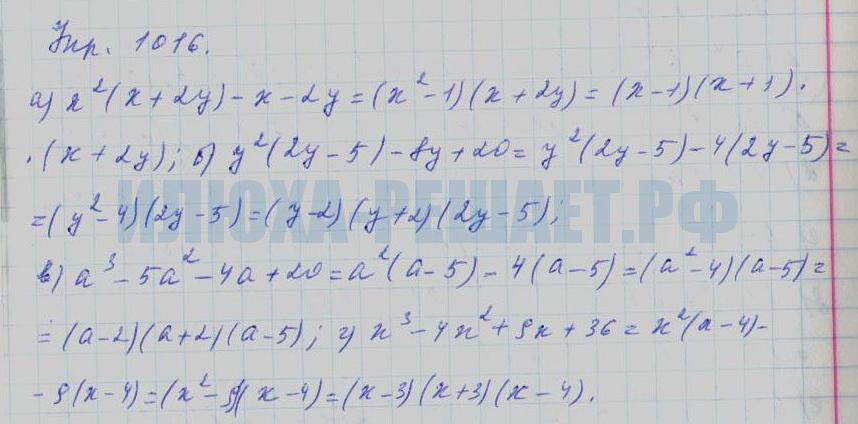 Упр. 1016.
а) x²(x+2y)-x-2y=(x²-1)(x+2y)=(x-1)(x+1)·
·(x+2y); б) y²(2y-5)-8y+20=y²(2y-5)-4(2y-5)=
=(y²-4)(2y-5)=(y-2)(y+2)(2y-5);
ИЛЮХА-РЕШАЕТ.РФ
в) a³-5a²-4a+20=a²(a-5)-4(a-5)=(a²-4)(a-5)=
=(a-2)(a+2)(a-5); г) x³-4x²+9x+36=x²(x-4)-
-9(x-4)=(x²-9)(x-4)=(x-3)(x+3)(x-4).